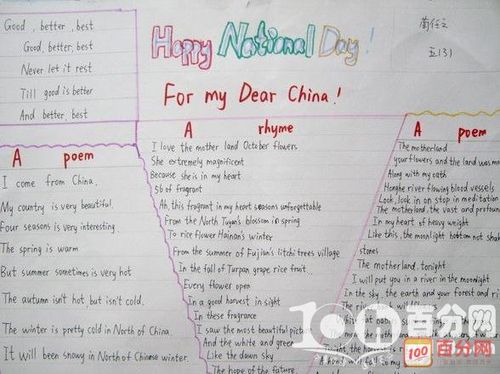 Good, better, best
Good, better, best
Never let it rest
Till good is better
And better, best
Happy National Day!
For my Dear China!
五(3)
A poem
I come from China.
My country is very beautiful.
Four seasons is very interesting
The spring is warm
But summer sometimes is very hot
The autumn isn't hot but isn't cold.
The winter is pretty cold in North of China.
It Will been snowy in North of Chinese winter.
A rhyme
I love the mother land October flowers
She extremely magnificent
Because she is in my heart
So of fragrant
Ah, this fragrant in my heart seasons unforgettable
From the North Tuyan's blossom in spring
To rice flower Hainan's winter
From the summer of Fujian's litchi trees village
In the fall of Turpan grape rice fruit
Every flower open
In a good harvest in sight
In these fragrance
I saw the most beautiful
And the white and green
Like the dawn sky
The hope of the future
A poem
The motherland
your flowers and the land was
Along with my oath
Honghe river flowing blood vessels
Look, look in on stop in meditation
The motherland, the vast and
In my heart of heavy weight
Like this, the moonlight bottom not
stones
The motherland, tonight
I will put you in a river in the moonlight
In the sky, the earth your forest and
100百分网
100百分网